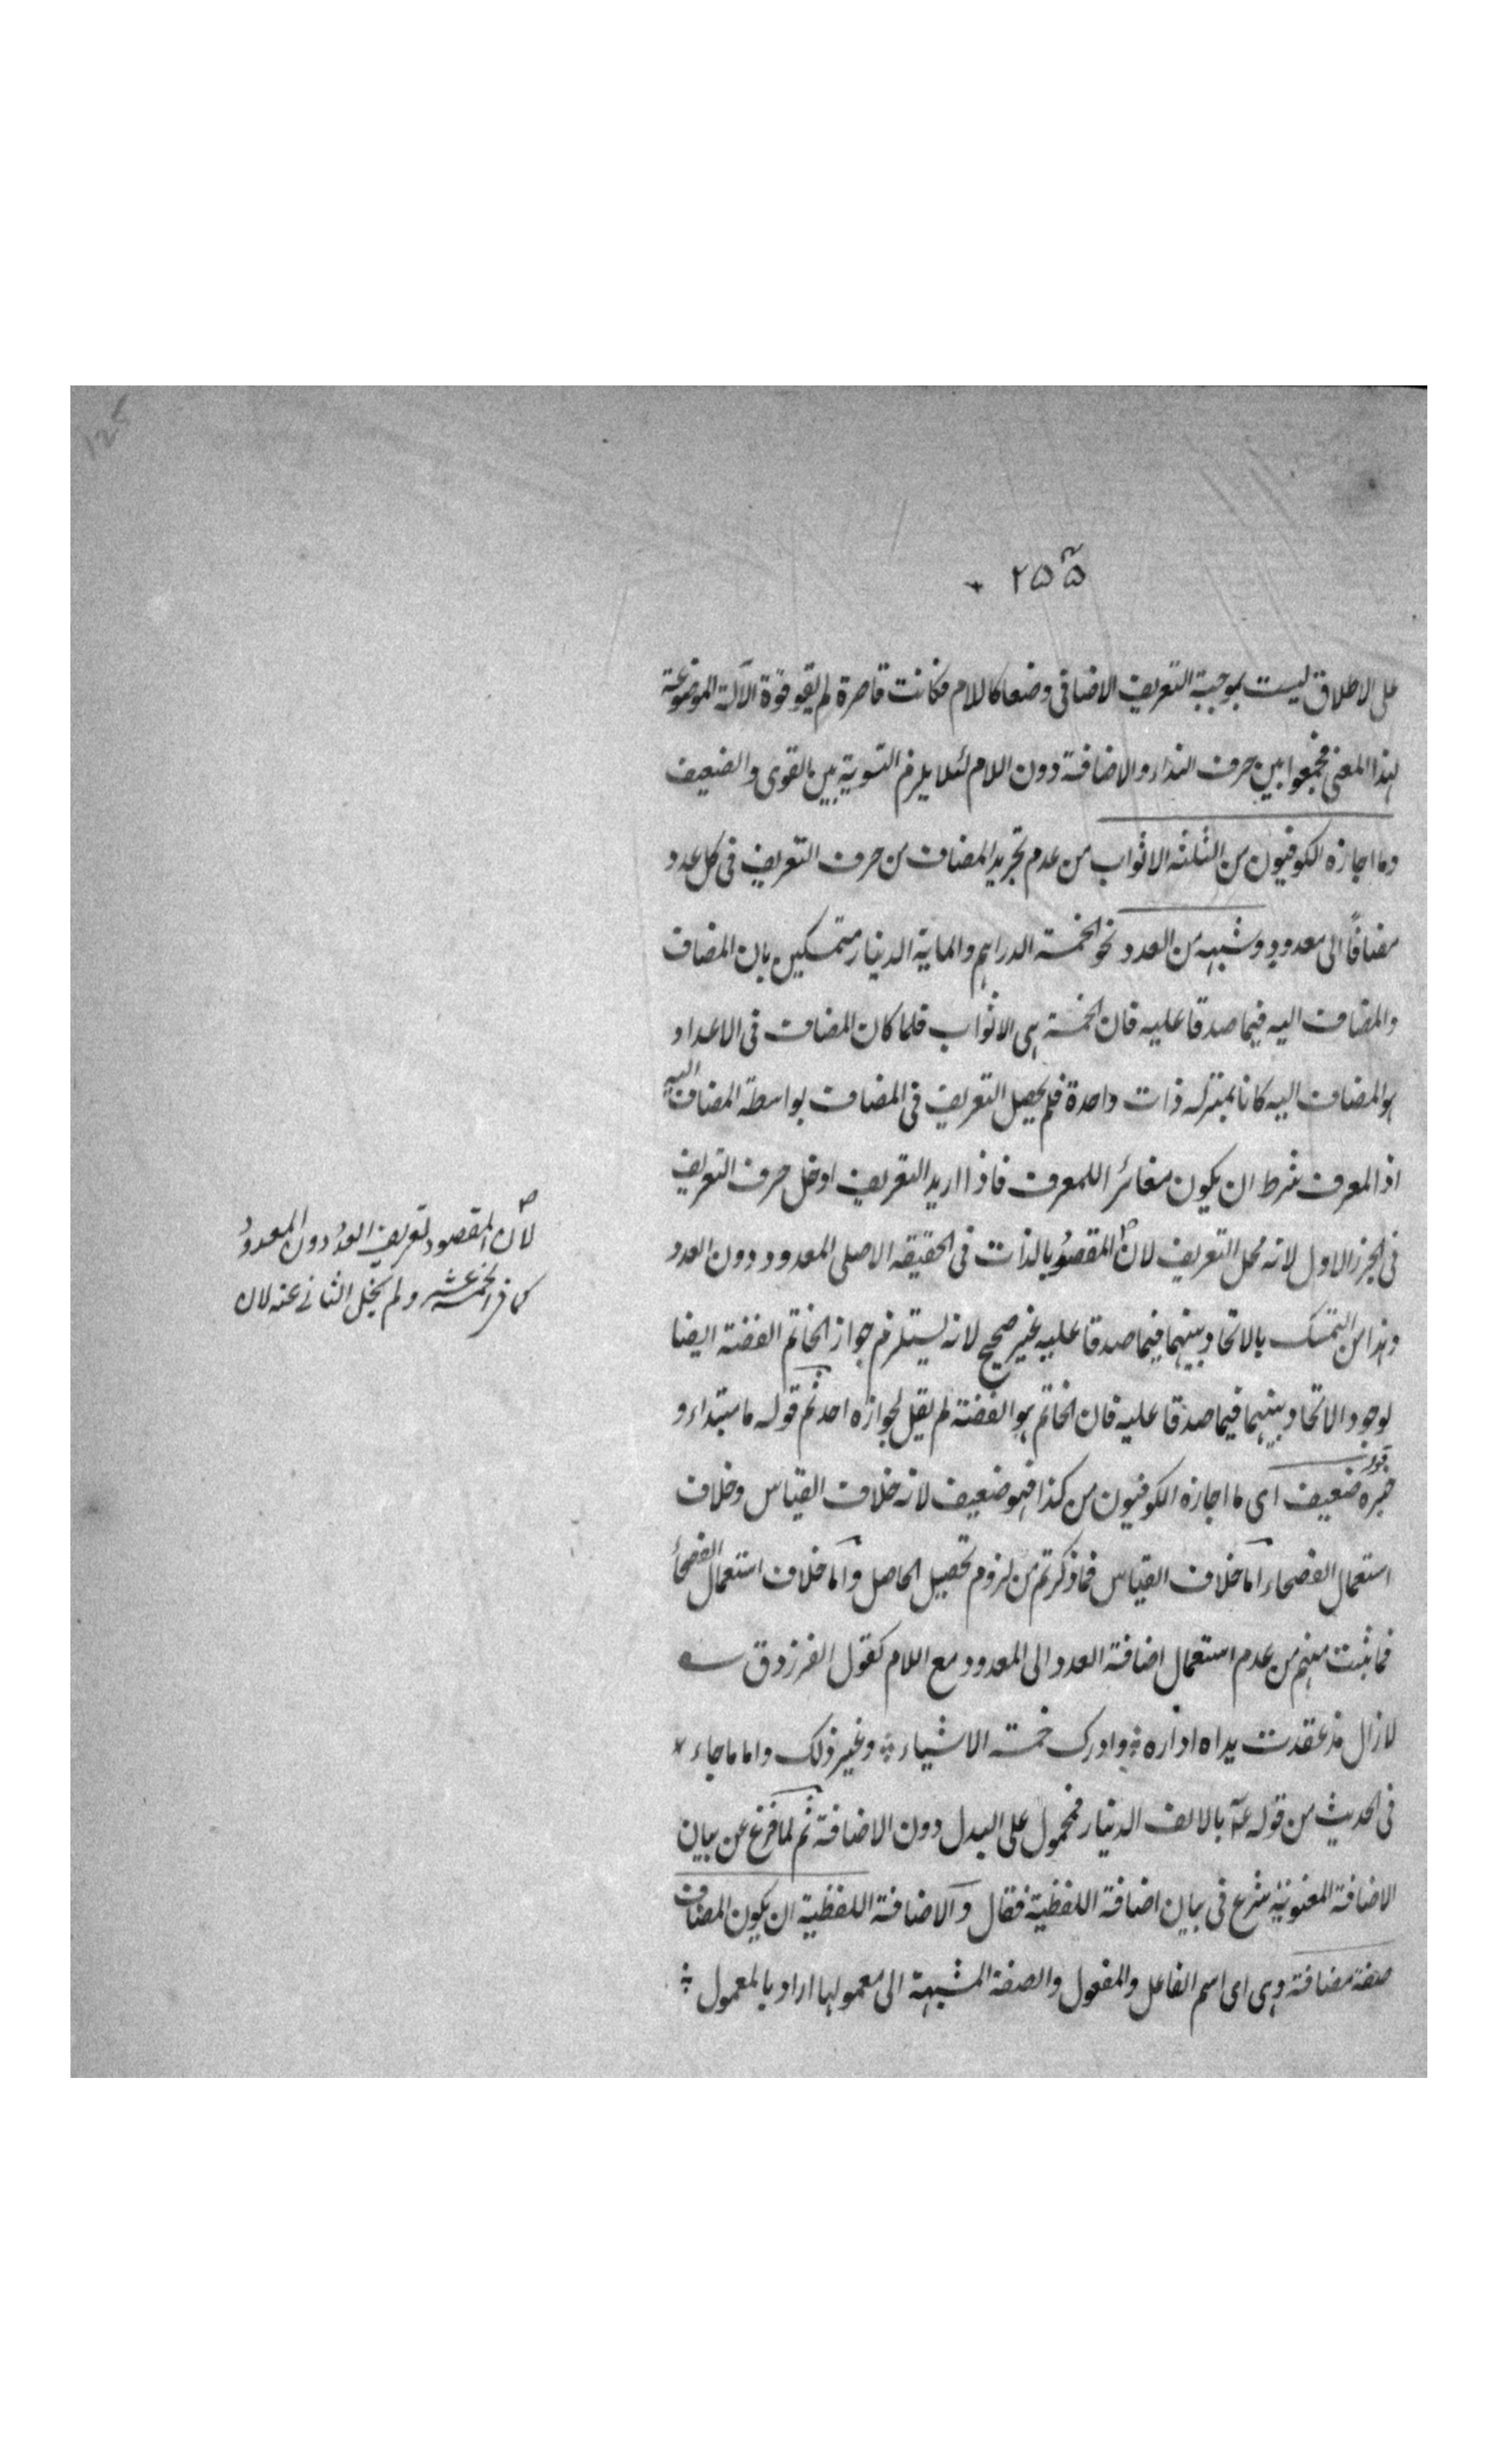 ۲۵۵
على الاطلاق ليست بموجبة التعريف الاضافى وضعا كاللام فكانت قاصرة لم يقو قوة الآلة الموضوعة
لهذا المعنى فجمعوا بين حرف النداء والاضافة دون اللام لئلا يلزم التسوية بين القوى والضعيف
وما اجازه الكوفيون من الثلثه الاثواب من عدم تجريد المضاف من حرف التعريف فى كل عدد
مضافًا الى معدود وشبهه من العدد نحو الخمسة الدراهم والماية الدينار متمسكين بان المضاف
والمضاف اليه فيما صدقا عليه فان الخمسة هى الاثواب فلما كان المضاف فى الاعداد
هو المضاف اليه كانا بمنزله ذات واحدة فلم يحصل التعريف فى المضاف بواسطة المضاف اليه
اذ المعرف شرط ان يكون مغائر اللمعرف فاذا اريد التعريف ادخل حرف التعريف
فى الجزء الاول لانه محل التعريف لان المقصود بالذات فى الحقيقه الاصلى المعدود دون العدد
وهذا من التمسك بالاتحاد بينهما فيما صدقا عليه غير صحيح لانه يستلزم جواز الخاتم الفضة ايضا
لوجود الاتحاد بينهما فيما صدقا عليه فان الخاتم هو الفضة لم يقل بجوازه احد ثم قوله ما مبتداء و
خبره قوله ضعيف اى ما اجازه الكوفيون من كذا فهو ضعيف لانه خلاف القياس وخلاف
استعمال الفصحاء اما خلاف القياس فما ذكرتم من لزوم تحصيل الحاصل واما خلاف استعمال الفصحاء
فما ثبت منهم من عدم استعمال اضافة العدد الى المعدود مع اللام كقول الفرزدق
لازال مذ عقدت يداه ازاره وادرك خمسة الاشياء وغير ذلك واما ماجاء
فى الحديث من قوله عم بالالف الدينار فمحمول على البدل دون الاضافة ثم لما فرغ عن بيان
الاضافة المعنوية شرع فى بيان اضافة اللفظية فقال والاضافة اللفظية ان يكون المضاف
صفة مضافة وهى اى اسم الفاعل والمفعول والصفة المشبهة الى معمولها اراد بالمعمول
لان المقصود تعريف العدد دون المعدود
كما فى الخمسة عشر ولم يخل الثانى عنه لان